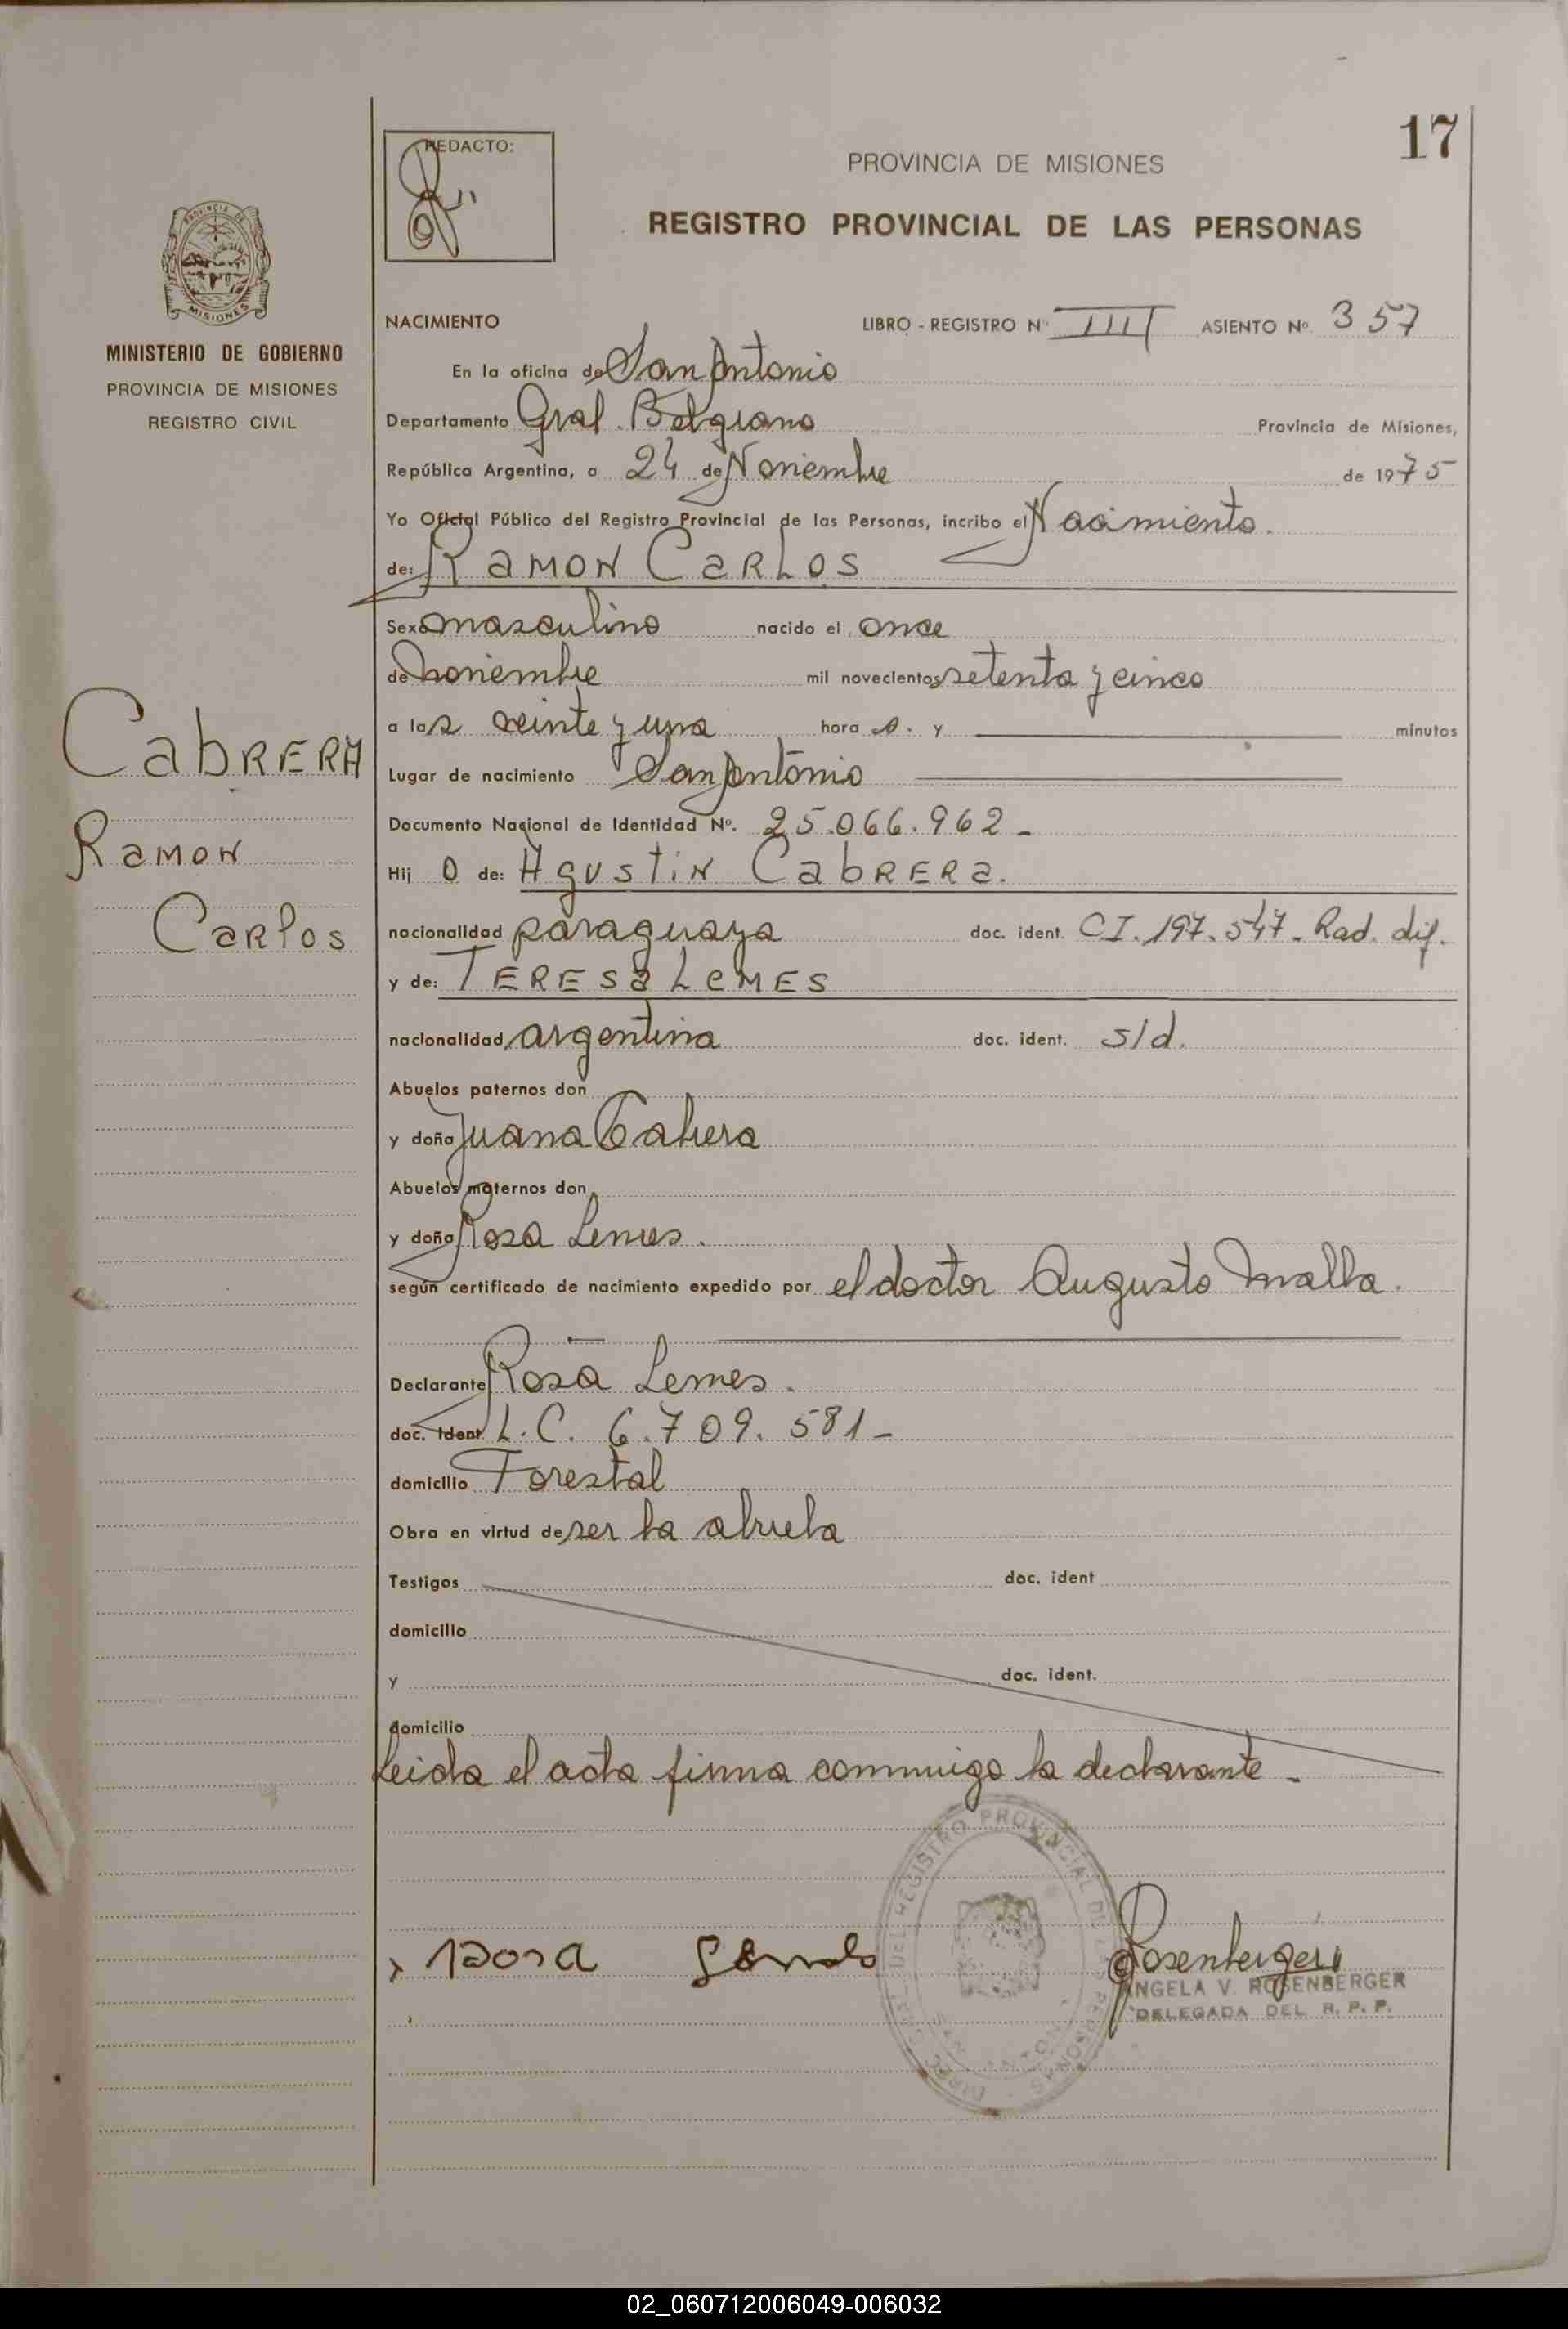 17
REDACTO:
PROVINCIA DE MISIONES
REGISTRO PROVINCIAL DE LAS PERSONAS
MISIONES
MINISTERIO DE GOBIERNO
PROVINCIA DE MISIONES
REGISTRO CIVIL
NACIMIENTO LIBRO - REGISTRO Nº III ASIENTO Nº. 357
En la oficina de San Antonio
Departamento Gral. Belgrano Provincia de Misiones,
República Argentina, a 24 de Noviembre de 1975
Yo Oficial Público del Registro Provincial de las Personas, incribo el Nacimiento.
de: RAMON CARLOS
Sexo masculino nacido el once
de noviembre mil novecientos setenta y cinco
a las veinte y una hora s. y minutos
Lugar de nacimiento San Antonio
Documento Nacional de Identidad Nº. 25.066.962-
Hij o de: AGUSTIN CABRERA.
nacionalidad paraguaya doc. ident. CI. 197.547- Rad. dif.
y de: TERESA LEMES
nacionalidad argentina doc. ident. s/d.
Abuelos paternos don
y doña Juana Cabrera
Abuelos maternos don
y doña Rosa Lemes.
según certificado de nacimiento expedido por el doctor Augusto Malla.
Declarante Rosa Lemes.
doc. ident. L.C. 6.709.581-
domicilio Forestal
Obra en virtud de ser la abuela
Testigos doc. ident
domicilio
y doc. ident.
domicilio
Leida el acta firma conmigo la declarante-
CABRERA
RAMON
CARLOS
Rosa
Rosenberger
ANGELA V. ROSENBERGER
DELEGADA DEL R. P. P.
REGISTRO PROVINCIAL DE LAS PERSONAS
02_060712006049-006032